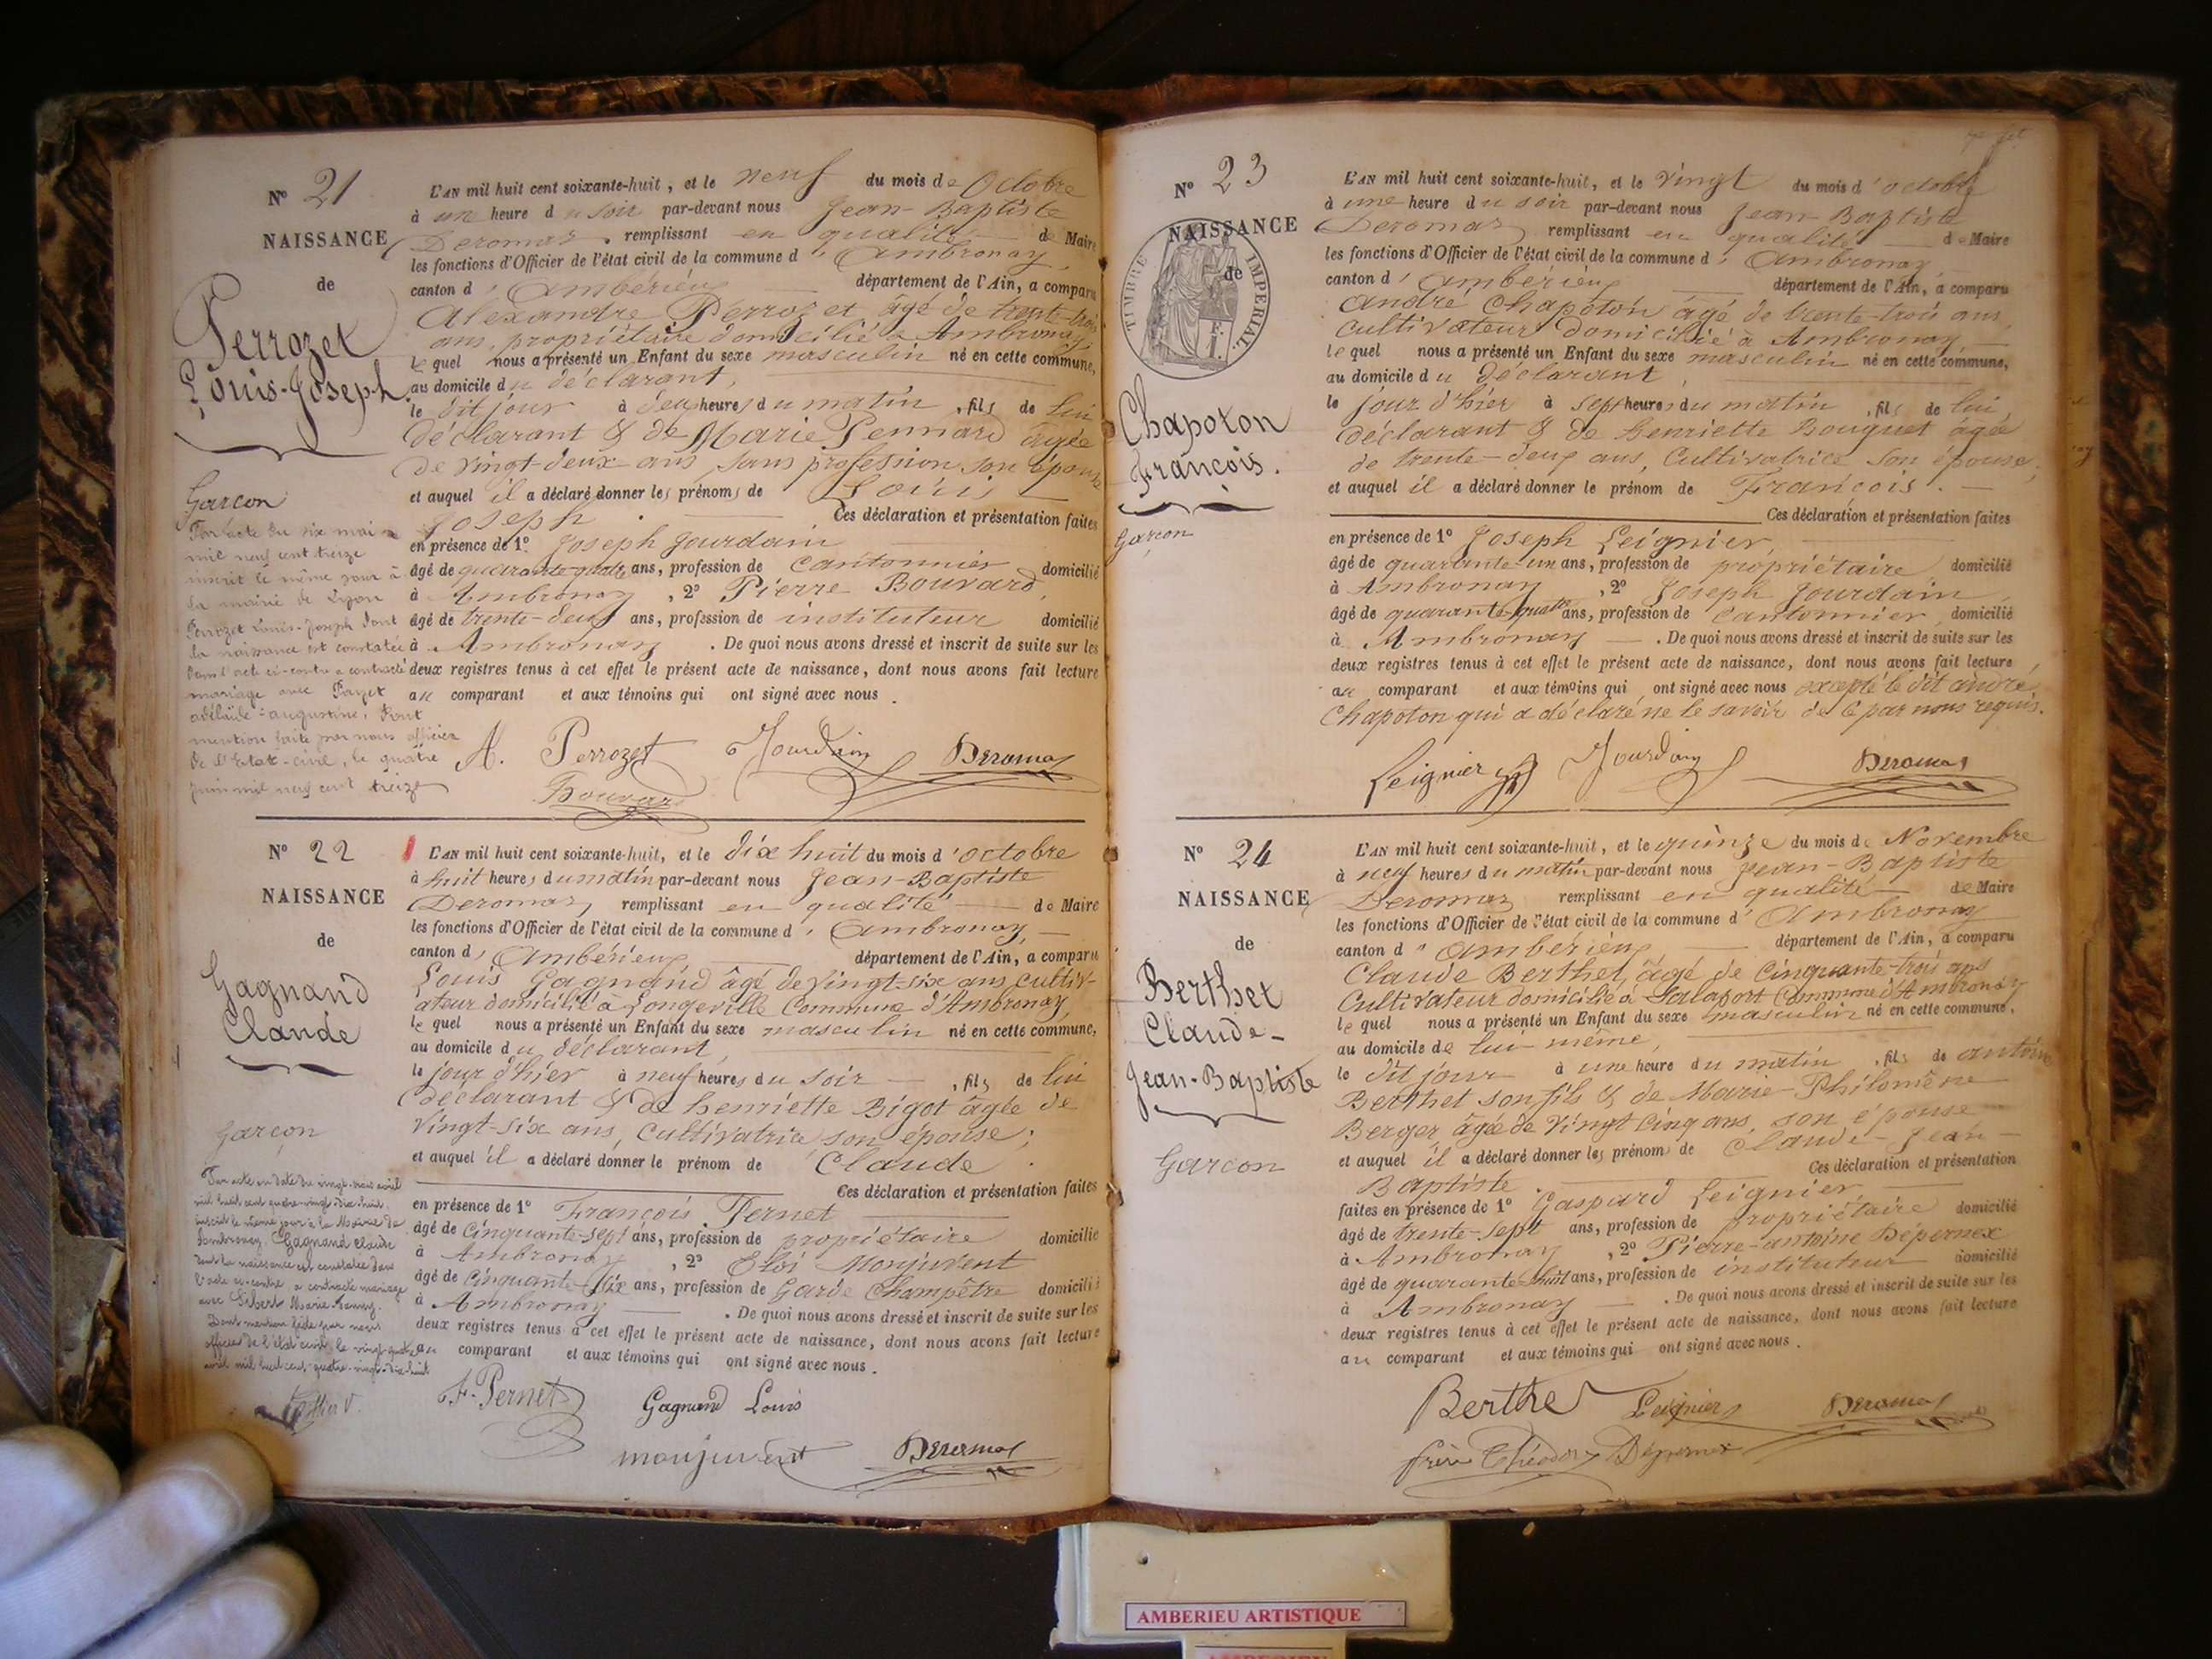 Nº 21
NAISSANCE
de
Perrozet
Louis-Joseph.
Garçon
Par acte du six mai
mil neuf cent treize
inscrit le même jour à
la mairie de Lyon
Perrozet Louis-Joseph dont
la naissance est constatée
dans l'acte ci-contre a contracté
mariage avec Payet
adélaïde-augustine, Dont
mention faite par nous officier
de l'Etat-civil, le quatre
juin mil neuf cent treize
L'AN mil huit cent soixante-huit, et le neuf du mois de Octobre
à un heure du soir par-devant nous Jean-Baptiste
Deromas, remplissant en qualité de Maire
les fonctions d'Officier de l'état civil de la commune d'Ambronay,
canton d'Ambérieu département de l'Ain, a comparu
Alexandre Perrozet âgé de trente-trois
ans, propriétaire domicilié à Ambronay,
lequel nous a présenté un Enfant du sexe masculin né en cette commune,
au domicile du déclarant,
le dit jour à deux heures du matin, fils de lui
déclarant & de Marie Pennard âgée
de vingt-deux ans, sans profession son épouse
et auquel il a déclaré donner les prénoms de Louis
Joseph. Ces déclaration et présentation faites
en présence de 1º Joseph Jourdain
âgé de quarante-quatre ans, profession de Cantonnier domicilié
à Ambronay, 2º Pierre Bouvard,
âgé de trente-deux ans, profession de instituteur domicilié
à Ambronay. De quoi nous avons dressé et inscrit de suite sur les
deux registres tenus à cet effet le présent acte de naissance, dont nous avons fait lecture
au comparant et aux témoins qui ont signé avec nous.
A. Perrozet Jourdain Deromas
Bouvard
Nº 22
NAISSANCE
de
Gagnand
Claude
garçon
Par acte en date du vingt-trois avril
mil huit cent quatre-vingt-dix-huit
inscrit le même jour à la Mairie de
d'ambronay Gagnand Claude
dont la naissance est constatée dans
l'acte ci-contre a contracté mariage
avec Gilbert Marie
Dont mention faite par nous
officier de l'état civil, le vingt-quatre
avril mil huit cent quatre-vingt-dix-huit
L'AN mil huit cent soixante-huit, et le dix huit du mois d'octobre
à huit heures du matin par-devant nous Jean-Baptiste
Deromas, remplissant en qualité de Maire
les fonctions d'Officier de l'état civil de la commune d'Ambronay,
canton d'Ambérieu département de l'Ain, a comparu
Louis Gagnand âgé de vingt-six ans cultiv-
ateur domicilié à Longeville Commune d'Ambronay,
lequel nous a présenté un Enfant du sexe masculin né en cette commune,
au domicile du déclarant,
le jour d'hier à neuf heures du soir, fils de lui
déclarant & de henriette Bigot âgée de
Vingt-six ans, Cultivatrice son épouse;
et auquel il a déclaré donner le prénom de Claude.
Ces déclaration et présentation faites
en présence de 1º François Pernet
âgé de cinquante-sept ans, profession de propriétaire domicilié
à Ambronay, 2º Eloi Monjuvent
âgé de cinquante-six ans, profession de Garde Champêtre domicilié
à Ambronay. De quoi nous avons dressé et inscrit de suite sur les
deux registres tenus à cet effet le présent acte de naissance, dont nous avons fait lecture
au comparant et aux témoins qui ont signé avec nous.
F. Pernet Gagnand Louis
monjuvent Deromas
Nº 23
NAISSANCE
de
TIMBRE IMPERIAL.
Chapoton
François.
Garçon
L'AN mil huit cent soixante-huit, et le vingt du mois d'octobre
à une heure du soir par-devant nous Jean-Baptiste
Deromas, remplissant en qualité de Maire
les fonctions d'Officier de l'état civil de la commune d'Ambronay,
canton d'Ambérieu département de l'Ain, a comparu
André Chapoton âgé de trente-trois ans,
Cultivateur domicilié à Ambronay,
lequel nous a présenté un Enfant du sexe masculin né en cette commune,
au domicile du déclarant,
le jour d'hier à sept heures du matin, fils de lui,
déclarant & de henriette Bouquet âgée
de trente-deux ans, Cultivatrice son épouse;
et auquel il a déclaré donner le prénom de François.
Ces déclaration et présentation faites
en présence de 1º Joseph Leignier,
âgé de quarante-un ans, profession de propriétaire domicilié
à Ambronay, 2º Joseph Jourdain,
âgé de quarante-quatre ans, profession de Cantonnier, domicilié
à Ambronay. De quoi nous avons dressé et inscrit de suite sur les
deux registres tenus à cet effet le présent acte de naissance, dont nous avons fait lecture
au comparant et aux témoins qui ont signé avec nous excepté le dit andré
Chapoton qui a déclaré ne le savoir de ce par nous requis.
Leignier Jourdain Deromas
Nº 24
NAISSANCE
de
Berthet
Claude-
Jean-Baptiste
Garçon
L'AN mil huit cent soixante-huit, et le quinze du mois de Novembre
à neuf heures du matin par-devant nous Jean-Baptiste
Deromas remplissant en qualité de Maire
les fonctions d'Officier de l'état civil de la commune d'Ambronay
canton d'Ambérieu département de l'Ain, a comparu
Claude Berthet, âgé de cinquante-trois ans
Cultivateur domicilié à Salaport Commune d'Ambronay
lequel nous a présenté un Enfant du sexe masculin né en cette commune,
au domicile de lui même,
le dit jour à une heure du matin, fils de antoine
Berthet son fils & de Marie Philomène
Berger âgée de Vingt Cinq ans, son épouse
et auquel il a déclaré donner les prénoms de Claude-Jean-
Baptiste. Ces déclaration et présentation
faites en présence de 1º Gaspard Leignier
âgé de trente-sept ans, profession de propriétaire domicilié
à Ambronay, 2º Pierre-antoine Dépernex
âgé de quarante-huit ans, profession de instituteur domicilié
à Ambronay. De quoi nous avons dressé et inscrit de suite sur les
deux registres tenus à cet effet le présent acte de naissance, dont nous avons fait lecture
au comparant et aux témoins qui ont signé avec nous.
Berthet Leignier Deromas
frère Théodore Dépernex
AMBERIEU ARTISTIQUE